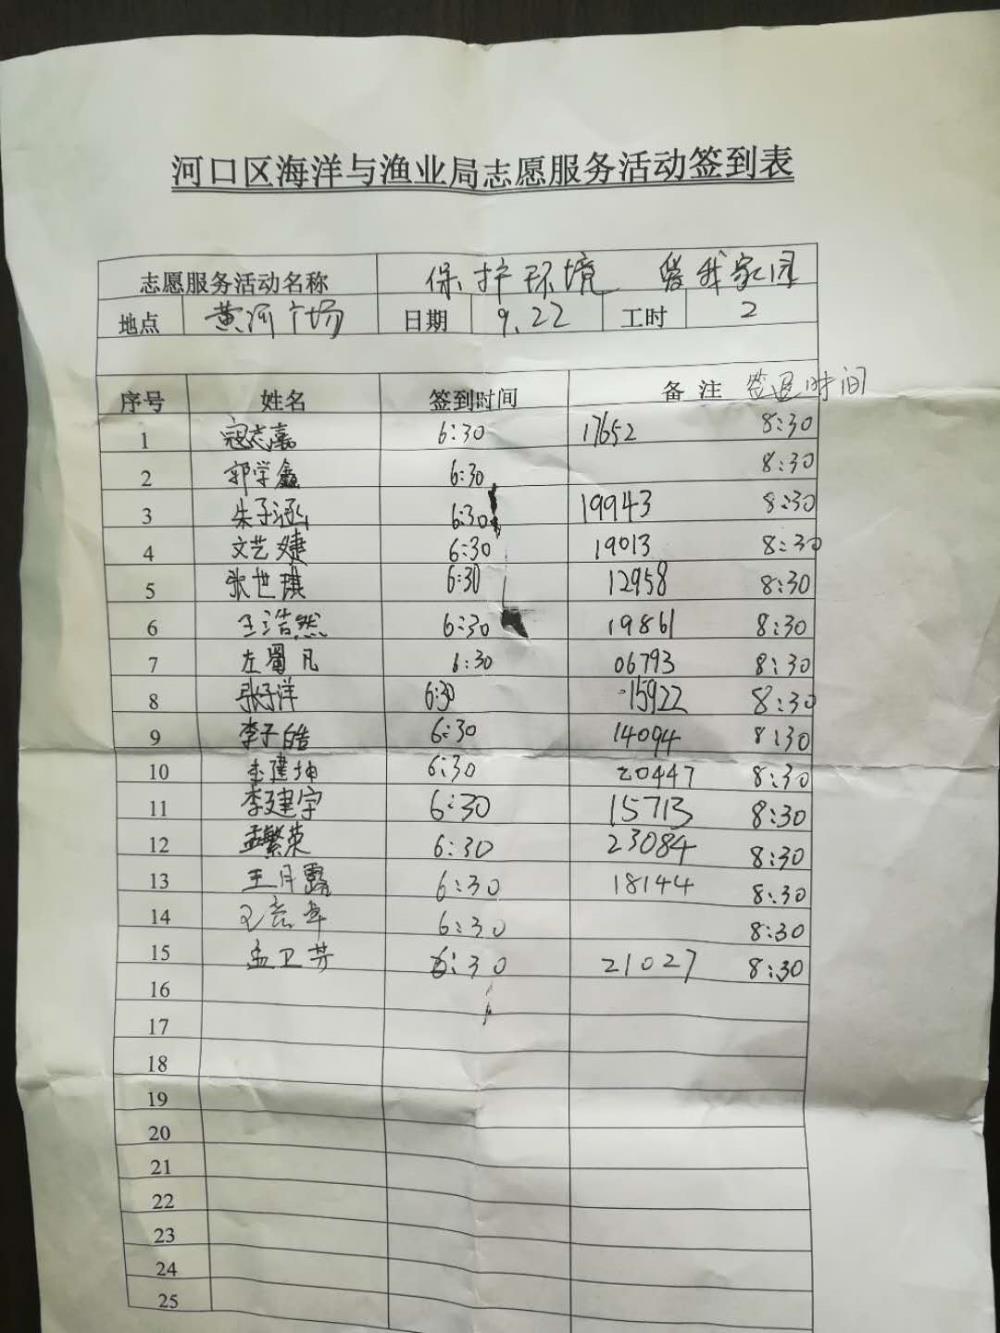 河口区海洋与渔业局志愿服务活动签到表
志愿服务活动名称 保护环境 爱我家园
地点 黄河广场 日期 9.22 工时 2
序号 姓名 签到时间 备注 签退时间
1 寇志嘉 6:30 17652 8:30
2 郭学鑫 6:30 8:30
3 朱子涵 6:30 19943 8:30
4 文艺婕 6:30 19013 8:30
5 张世琪 6:30 12958 8:30
6 王浩然 6:30 19861 8:30
7 左蜀凡 6:30 06793 8:30
8 张子洋 6:30 15922 8:30
9 李子皓 6:30 14094 8:30
10 李建坤 6:30 20447 8:30
11 李建宇 6:30 15713 8:30
12 孟繁荣 6:30 23084 8:30
13 王月露 6:30 18144 8:30
14 6:30 8:30
15 孟卫芳 6:30 21027 8:30
16
17
18
19
20
21
22
23
24
25